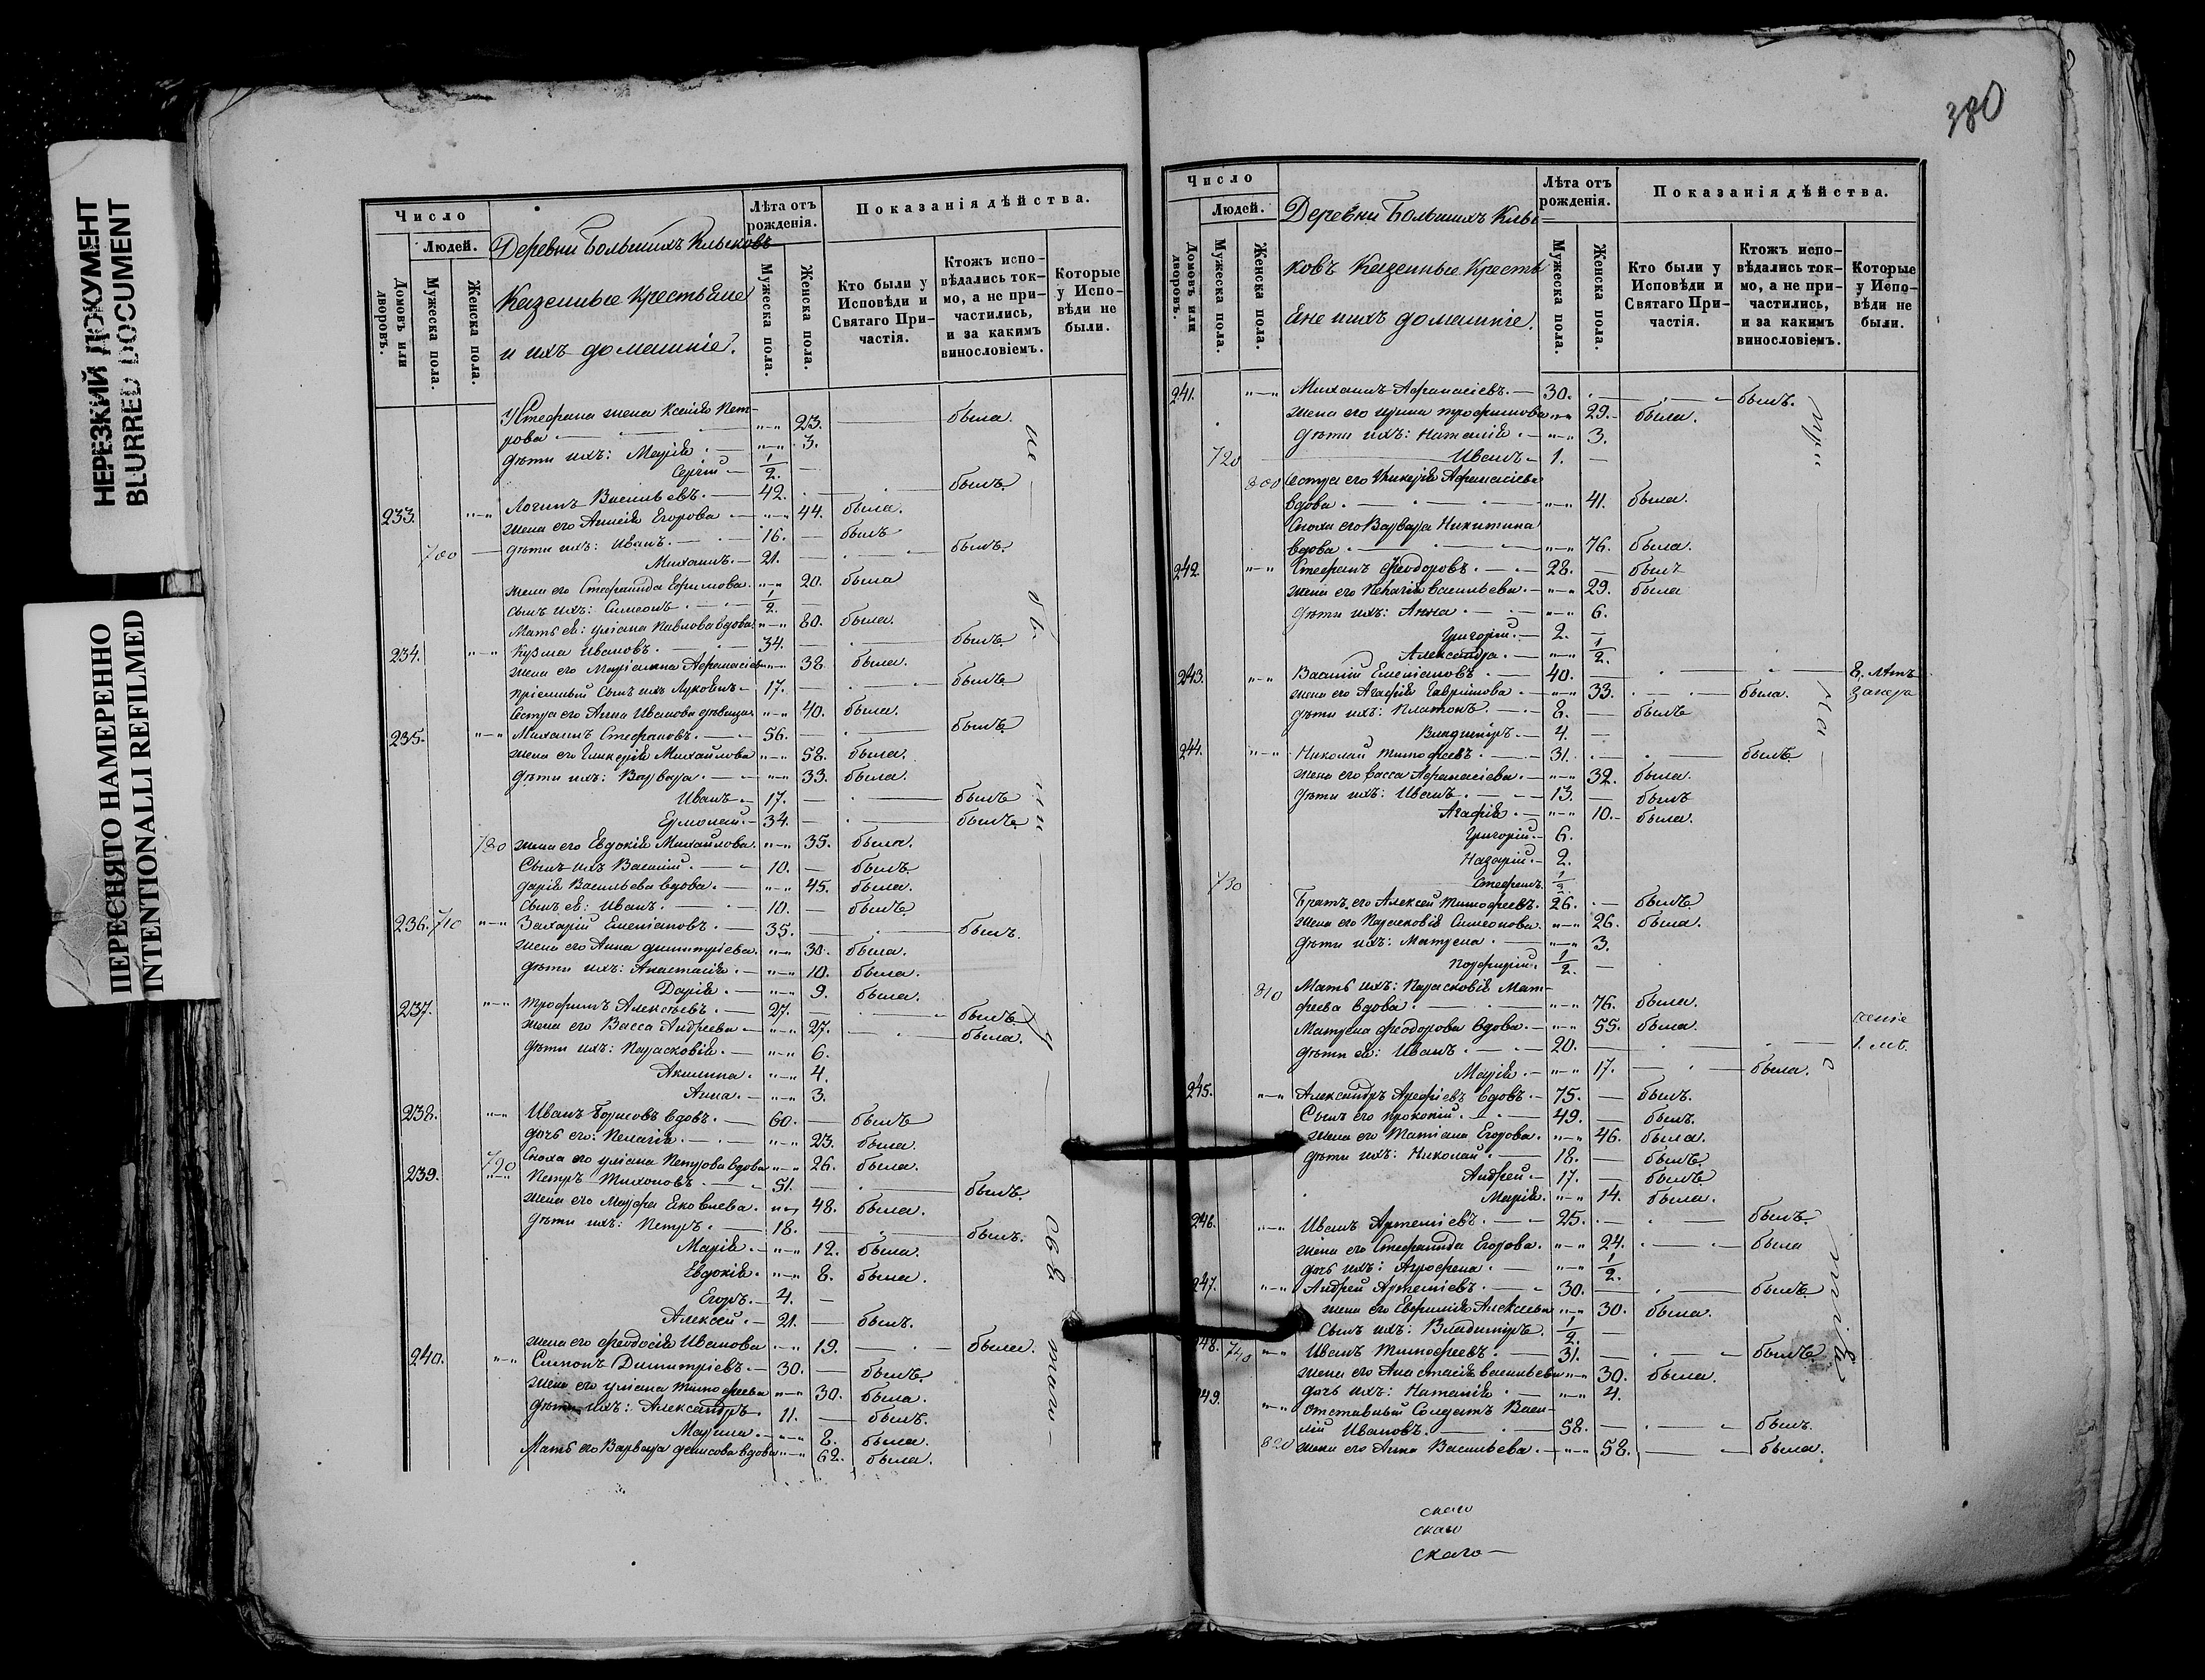 380
НЕРЕЗКИЙ ДОКУМЕНТ
BLURRED DOCUMENT
ПЕРЕСНЯТО НАМЕРЕННО
INTENTIONALLI REFILMED
Число
Людей.
Домовъ или дворовъ.
Мужеска пола.
Женска пола.
Деревни Большихъ Клыковъ
Казенные Крестьяне
и ихъ домашніе.
Лѣта отъ рожденія.
Мужеска пола.
Женска пола.
Показанія дѣйства.
Кто были у Исповѣди и Святаго При-частія.
Ктожъ испо-вѣдались ток-мо, а не при-частились, и за какимъ винословіемъ.
Которые у Испо-вѣди не были.
Стефана жена Ксенія Пет-
рова 23. была.
дѣти ихъ: Марія. 3.
Сергій 1/2.
233. Логинъ Васильевъ. 42. былъ.
жена его Егорова 44. была.
700 дѣти ихъ: Иванъ. 16. былъ
Михаилъ. 21. былъ.
жена его Стефанида Ефимова. 20. была
сынъ ихъ: Симеонъ. 1/2.
Мать ея: Уліана Павлова вдова. 80. была.
234. Кузма Ивановъ. 34. былъ
жена его Маріамна Афанасіева 38. была.
пріемный сынъ ихъ 17. былъ.
Сестра его Анна Иванова дѣвица. 40. была.
235. Михаилъ Стефановъ. 56. былъ.
жена его Гликерія Михайлова 58. была.
дѣти ихъ: Варвара. 33. была.
Иванъ. 17. былъ
Ермолай. 34. былъ.
780 жена его Евдокія Михайлова. 35. была.
Сынъ ихъ Василій. 10. былъ.
Дарія Васильева вдова. 45. была.
Сынъ ея: Иванъ. 10. былъ.
236. 710 Захарій Емеліановъ. 35. былъ.
жена его Анна Димитріева. 30. была.
дѣти ихъ: Анастасія. 10. была.
Дарія. 9. была.
237. Трофимъ Алексѣевъ. 27. былъ.
жена его Васса Андреева 27. была.
дѣти ихъ: Парасковія. 6.
Акилина. 4.
Анна. 3.
238. Иванъ Борисовъ вдовъ. 60. былъ
дочь его: Пелагія. 23. была.
790 Сноха его Уліана Петрова вдова 26. была.
239. Петръ Тихоновъ. 51. былъ.
жена его Марфа Яковлева. 48. была.
дѣти ихъ: Петръ. 18. былъ.
Марія. 12. была.
Евдокія. 8. была.
Егоръ. 4.
Алексѣй. 21. былъ.
жена его Феодосія Иванова 19. была.
240. Симонъ Димитріевъ. 30. былъ.
жена его Уліана Тимофеева 30. была.
дѣти ихъ: Александръ. 11. былъ.
Марина. 8. была.
Мать его Варвара Денисова вдова 62. была.
Число
Людей.
Домовъ или дворовъ.
Мужеска пола.
Женска пола.
Деревни Большихъ Клы-
ковъ Казенные Кресть
яне и ихъ домашніе.
Лѣта отъ рожденія.
Мужеска пола.
Женска пола.
Показанія дѣйства.
Кто были у Исповѣди и Святаго При-частія.
Ктожъ испо-вѣдались ток-мо, а не при-частились, и за какимъ винословіемъ.
Которые у Испо-вѣди не были.
241. Михаилъ Афанасіевъ. 30. былъ.
жена его Ирина Трофимова 29. была.
дѣти ихъ: Наталія. 3.
720 Иванъ 1.
800 Сестра его Гликерія Афанасіева
вдова. 41. была.
Сноха его Варвара Никитина
вдова. 76. была.
242. Стефанъ Феодоровъ. 28. былъ
жена его Васильева. 29. была
дѣти ихъ: Анна. 6.
Григорій. 2.
Александра. 1/2.
243. Василій Емеліановъ. 40. 8. лѣтъ
жена его Агафія Гаврилова. 33. была.
дѣти ихъ: Платонъ. 8. былъ
Владимиръ. 4.
244. Николай Тимофеевъ. 31. былъ.
жена его Васса Афанасіева. 32. была.
дѣти ихъ: Иванъ. 13. былъ
Агафія. 10. была.
Григорій. 6.
Назарій. 2.
730 Стефанъ. 1/2.
Братъ его Алексѣй Тимофеевъ. 26. былъ.
жена его Парасковія Симеонова. 26. была.
дѣти ихъ: Матрена. 3.
Порфирій. 1/2.
810 Мать ихъ: Парасковія Мат-
феева вдова. 76. была.
Матрена Феодорова вдова. 55. была.
дѣти ея: Иванъ. 20.
Марія. 17. была.
245. Александръ Арефіевъ вдовъ. 75. былъ.
Сынъ его Прокопій. 49. былъ.
жена его Татіана Егорова. 46. была.
дѣти ихъ: Николай. 18. былъ.
Андрей. 17. былъ
Марія. 14. была.
246. Иванъ Артеміевъ. 25. былъ.
жена его Стефанида Егорова. 24. была
дочь ихъ: Агрофена. 1/2.
247. Андрей Артеміевъ. 30. былъ.
жена его Евфимія Алексѣева 30. была.
Сынъ ихъ: Владимиръ. 1/2.
248. 740 Иванъ Тимофеевъ. 31. былъ.
жена его Анастасія Васильева 30. была.
дочь ихъ: Наталія. 4.
249. Отставный Солдатъ Васи-
лій Ивановъ. 58. былъ.
820 жена его Анна Васильева. 58. была.
скаго
скаго
скаго